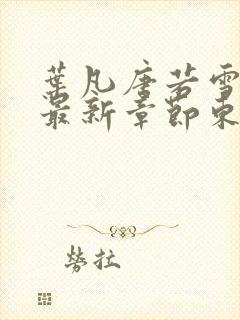 葉凡唐若雪
最新章節東
勞拉